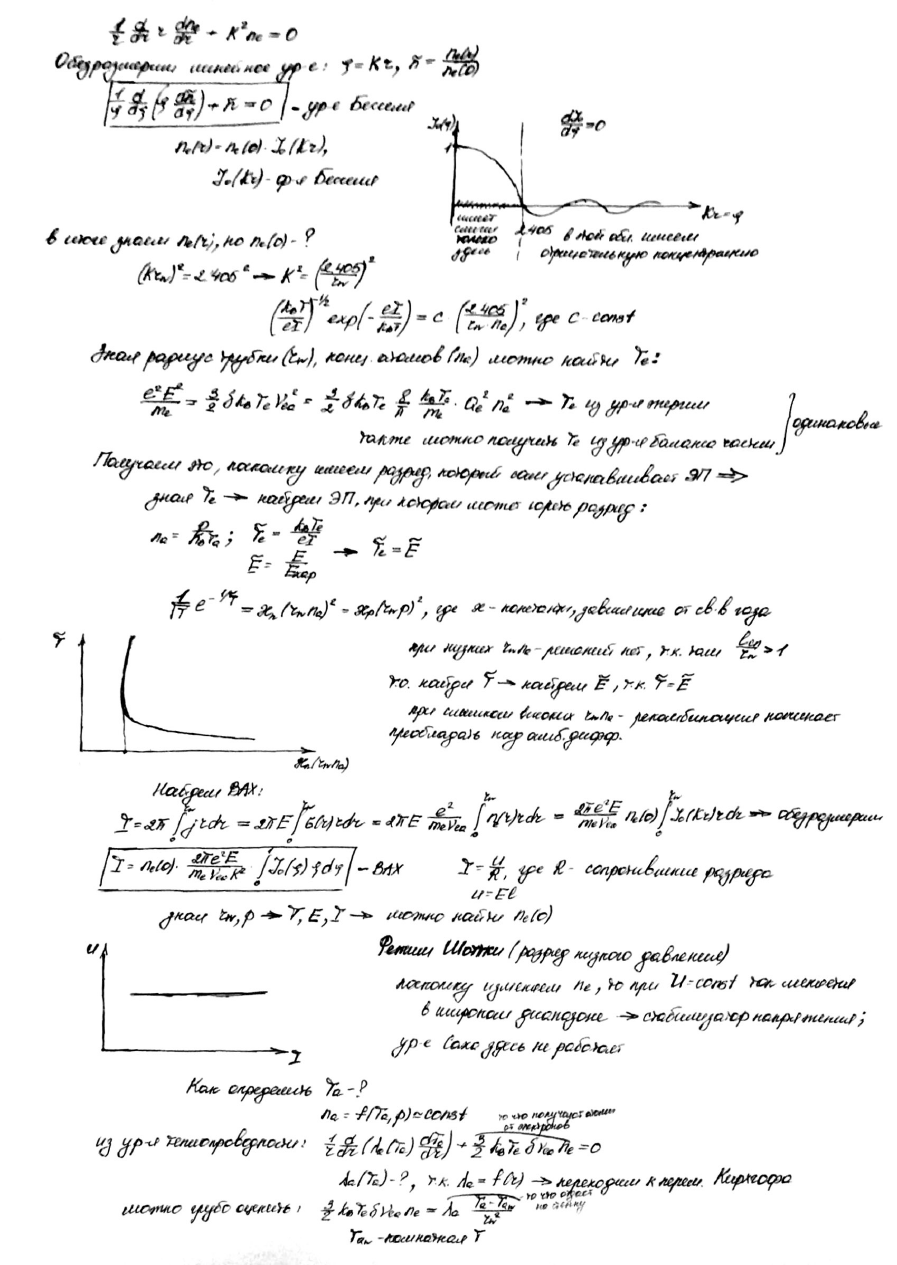 1/r d/dr r dnₑ/dr + K²nₑ = 0
Обезразмерим линейное ур-е: ρ = Kr, ñ = nₑ(r)/nₑ(0)
1/ρ d/dρ (ρ dñ/dρ) + ñ = 0 - ур-е Бесселя
nₑ(r) = nₑ(0)·J₀(Kr),
J₀(Kr) - ф-я Бесселя
J₀(ρ)
1
=0
Kr=ρ
имеет
смысл
только
здесь
2.405 в той обл. имеем
отрицательную концентрацию
в итоге знаем nₑ(r), но nₑ(0) - ?
(Krw)² = 2.405² → K² = (2.405/rw)²
(kBT/eI)^(-1/2) exp(-eI/kBT) = C (2.405/(rw·na))², где C - const
Зная радиус трубки (rw), конц. атомов (na) можно найти Tₑ:
e²E²/mₑ = 3/2 δkBTₑνea² = 3/2 δkBTₑ 8/π kBTₑ/mₑ · Qe²na² → Tₑ из ур-я энергии
также можно получить Tₑ из ур-я баланса частиц
одинаковые
Получаем это, поскольку имеем разряд, который сам устанавливает ЭП ⇒
зная Tₑ → найдем ЭП, при котором может гореть разряд:
na = p/kBTa; T̃ₑ = kBTₑ/eI
Ẽ = E/Eхар → T̃ₑ = Ẽ
1/√T̃ e^(-1/T̃) = xn(rwna)² = xp(rwp)², где x - константы, зависящие от св-в газа
T̃
xn(rwna)
при низких rwna - решений нет, т.к. там /rw > 1
т.о. найдя T̃ → найдем Ẽ, т.к. T̃ = Ẽ
при слишком высоких rwna - рекомбинация начинает
преобладать над амб. дифф.
Найдем ВАХ:
I = 2π∫₀^rw jrdr = 2πE∫₀^rw σ(r)rdr = 2πE e²/(mₑνea) ∫₀^rw n(r)rdr = 2πe²E/(mₑνea) nₑ(0)∫₀^rw J₀(Kr)rdr → обезразмерим
I = nₑ(0)· 2πe²E/(mₑνeaK²) · ∫₀ J₀(ρ)ρdρ - ВАХ
I = U/R, где R - сопротивление разряда
U = El
зная rw, p → T, E, I → можно найти nₑ(0)
U
I
Режим Шоттки (разряд низкого давления)
поскольку изменяем nₑ, то при U=const ток меняется
в широком диапазоне → стабилизатор напряжения;
ур-е Саха здесь не работает
Как определить Ta - ?
na = f(Ta, p) ≈ const
то что получают атомы
от электронов
из ур-я теплопроводности: 1/r d/dr (λa(Ta) dTa/dr) + 3/2 kBTₑδνeanₑ = 0
λa(Ta) - ?, т.к. λa = f(r) → переходим к перем. Кирхгофа
можно грубо оценить: 3/2 kBTₑδνeanₑ = λa (Ta - Taw)/rw²
то что
на стенку
Taw - комнатная T